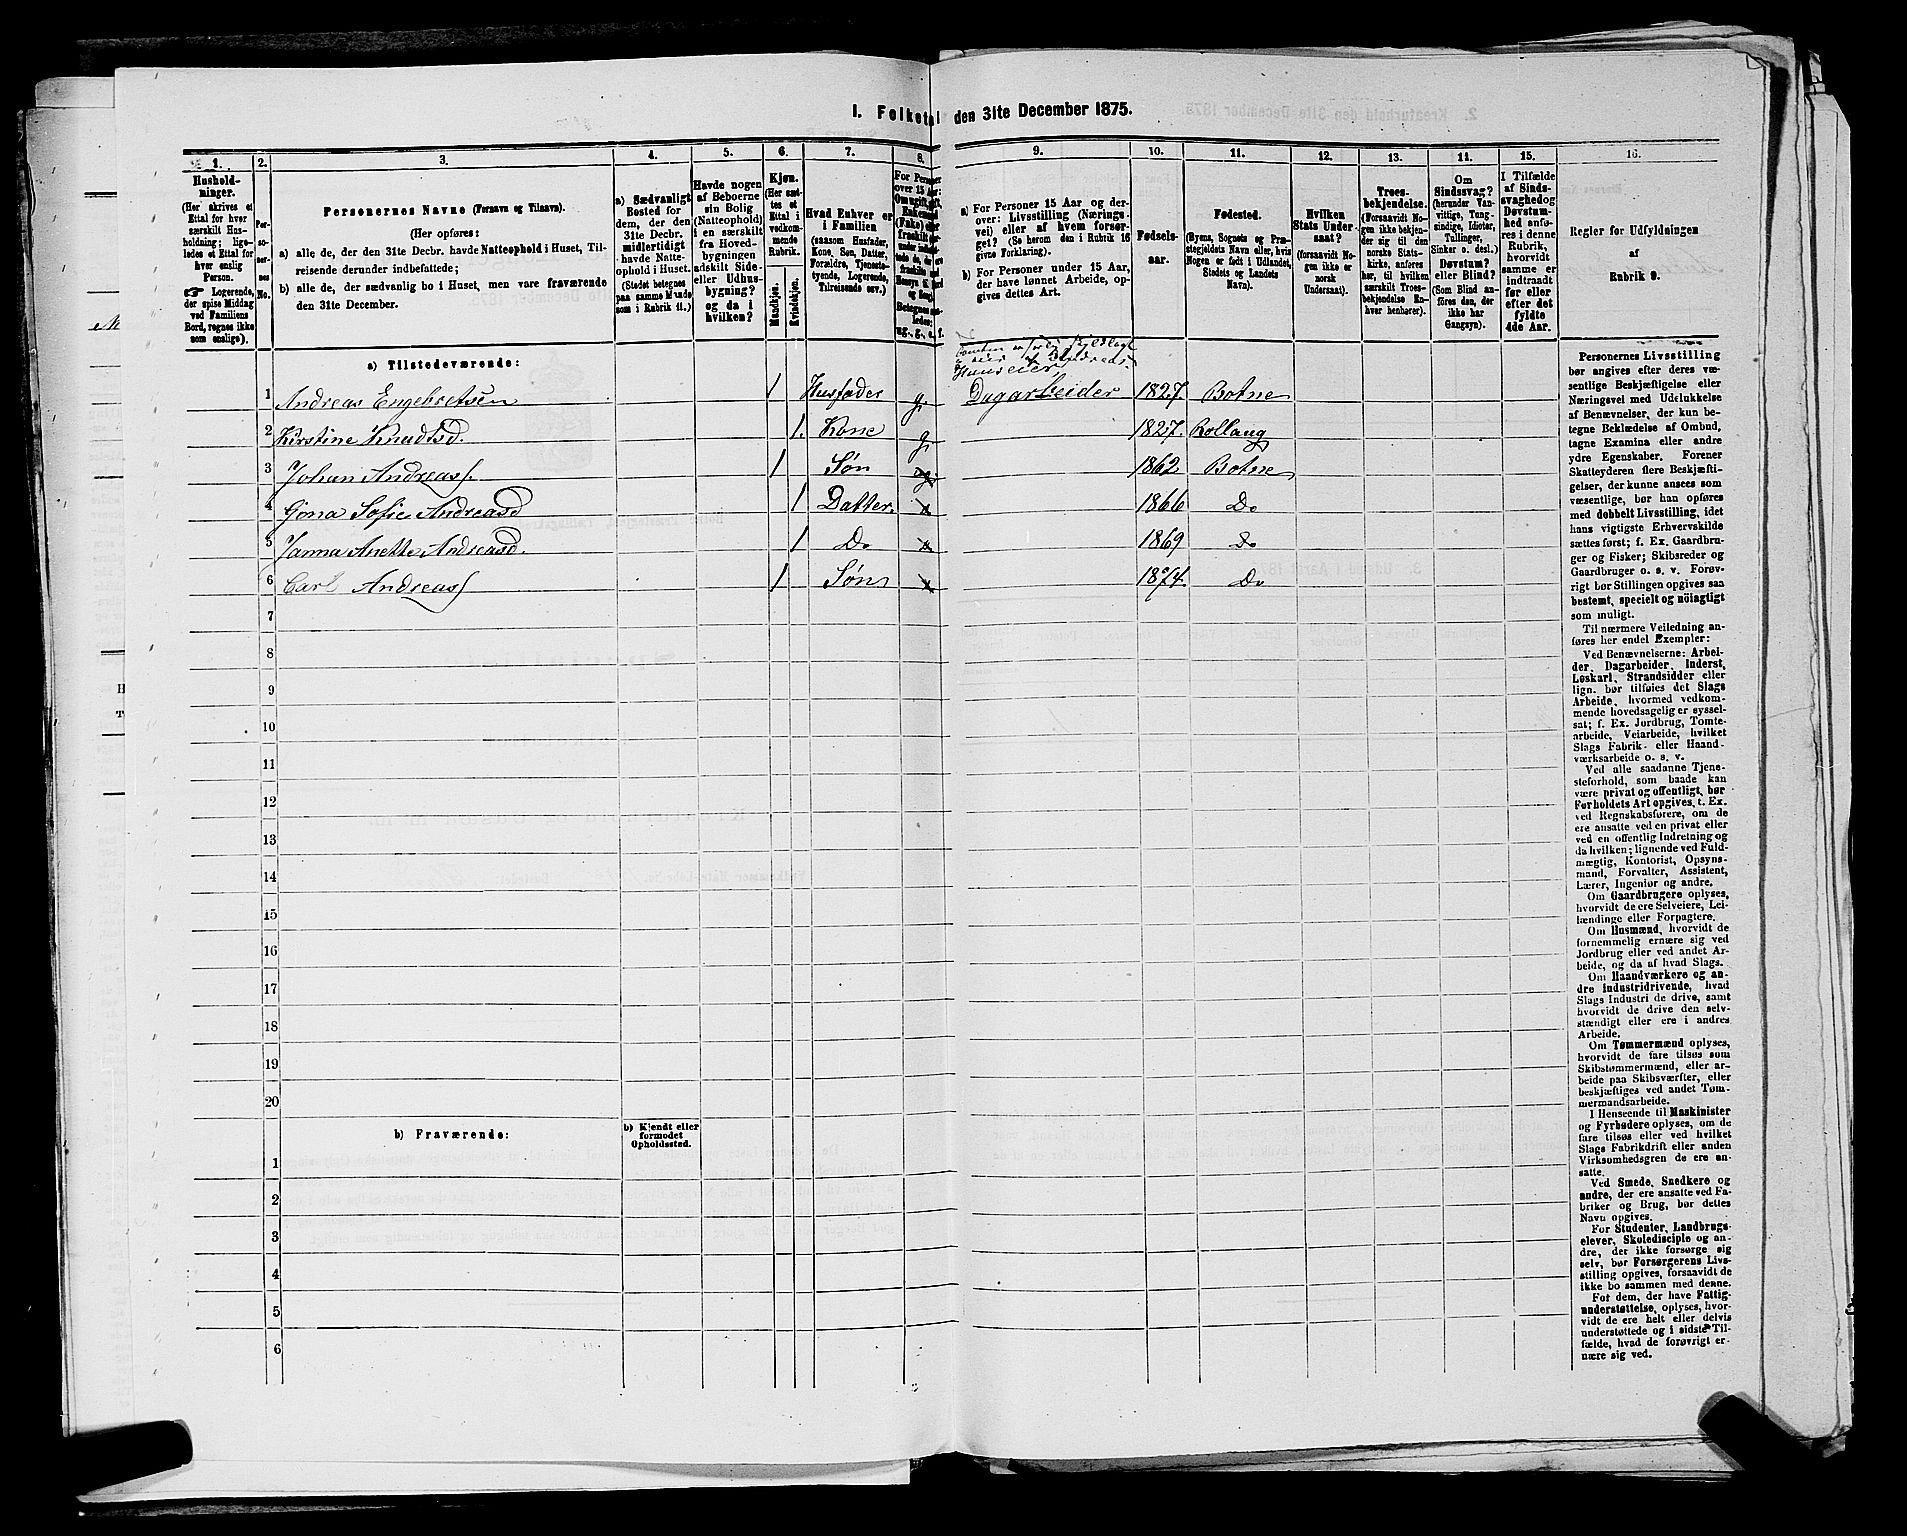 1. Folketal den 31te December 1875.
1. 2. 3. 4. 5. 6. 7. 8. 9. 10. 11. 12. 13. 14. 15. 16.
Hushold-
ninger.
(Her skrives et
Ettal for hver
særskilt Hus-
holdning; lige-
ledes et Ettal for
hver enslig
Person.
☞ Logerende,
der spise Middag
ved Familiens
Bord, regnes ikke
som enslige).
Per-
so-
ner-
nes
No.
Personernes Navne (Fornavn og Tilnavn).
(Her opføres:
a) alle de, der den 31te Decbr. havde Natteophold i Huset, Til-
reisende derunder indbefattede;
b) alle de, der sædvanlig bo i Huset, men vare fraværende
den 31te December.
a) Sædvanligt
Bosted for
dem, der den
31te Decbr.
midlertidigt
havde Natte-
ophold i Huset.
(Stedet betegnes
paa samme Maade
som i Rubrik 11.)
Havde nogen
af Beboerne
sin Bolig
(Natteophold)
i en særskilt
fra Hoved-
bygningen
adskilt Side-
eller Udhus-
bygning?
og da i
hvilken?
Kjøn.
(Her sæt-
tes et
Ettal i
vedkom-
mende
Rubrik.)
Mandkjøn.
Kvindekjøn.
Hvad Enhver er
i Familien
(saasom Husfader,
Kone, Søn, Datter,
Forældre, Tjeneste-
tyende, Logerende,
Tilreisende osv.)
For Personer
over 15 Aar:
Om ugift, gift,
Enkemand
(Enke) eller
fraskilt
Betegnes saa-
ledes:
ug., g., e., f.
a) For Personer 15 Aar og der-
over: Livsstilling (Nærings-
vei) eller af hvem forsør-
get? (Se herom den i Rubrik 16
givne Forklaring).
b) For Personer under 15 Aar,
der have lønnet Arbeide, op-
gives dettes Art.
Fødsels-
aar.
Fødested.
(Byens, Sognets og Præ-
stegjeldets Navn eller, hvis
Nogen er født i Udlandet,
Stedets og Landets
Navn).
Hvilken
Stats Under-
saat?
(forsaavidt No-
gen ikke er
norsk
Undersaat).
Troes-
bekjendelse.
(Forsaavidt No-
gen ikke bekjen-
der sig til den
norske Stats-
kirke, anføres
her, til hvilken
særskilt Troes-
bekjendelse En-
hver henhører).
Om
Sindssvag?
(herunder Van-
vittige, Tung-
sindige, Idioter,
Tullinger,
Sinker o. desl.)
Døvstum?
eller Blind?
(Som Blind an-
føres den, der
ikke har
Gangsyn).
I Tilfælde
af Sinds-
svaghed og
Døvstum-
hed anfø-
res i denne
Rubrik,
hvorvidt
samme er
indtraadt
før eller
efter det
fyldte
4de Aar.
Regler for Udfyldningen
af
Rubrik 9.
a) Tilstedeværende:
Huseier,
1 Andreas Engebretsen 1 Husfader g. Dagarbeider 1827. Botne
2 Kirstine Knudsd. 1. Kone g. 1827. Rollaug
3 Johan Andreasf. 1 Søn ug. 1862 Botne
4 Gjona Sofie Andreasd 1 Datter. x 1866 Do
5 Janna Anette Andreasd. 1 Do x 1869 Do
6 Carl Andreasf 1 Søn x 1874. Do
7
8
9
10
11
12
13
14
15
16
17
18
19
20
b) Fraværende:
b) Kjendt eller
formodet
Opholdssted.
1
2
3
4
5
6
Personernes Livsstilling
bør angives efter deres væ-
sentlige Beskjæftigelse eller
Næringsvei med Udelukkelse
af Benævnelser, der kun be-
tegne Beklædelse af Ombud,
tagne Examina eller andre
ydre Egenskaber. Forener
Skatteyderen flere Beskjæfti-
gelser, der kunne ansees som
væsentlige, bør han opføres
med dobbelt Livsstilling, idet
hans vigtigste Erhvervskilde
sættes først; f. Ex. Gaardbru-
ger og Fisker; Skibsreder og
Gaardbruger o. s. v. Forøv-
rigt bør Stillingen opgives saa
bestemt, specielt og nöiagtigt
som muligt.
Til nærmere Veiledning an-
føres her endel Exempler:
Ved Benævnelserne: Arbei-
der, Dagarbeider, Inderst,
Løskarl, Strandsidder eller
lign. bør tilføies det Slags
Arbeide, hvormed vedkom-
mende hovedsagelig er syssel-
sat; f. Ex. Jordbrug, Tomte-
arbeide, Veiarbeide, hvilket
Slags Fabrik- eller Haand-
værksarbeide o. s. v.
Ved alle saadanne Tjene-
steforhold, som baade kan
være privat og offentligt, bør
Forholdets Art opgives, t. Ex.
ved Regnskabsførere, om de
ere ansatte ved en privat eller
ved en offentlig Indretning og
da hvilken; lignende ved Fuld-
mægtig, Kontorist, Opsyns-
mand, Forvalter, Assistent,
Lærer, Ingeniør og andre.
Om Gaardbrugere oplyses,
hvorvidt de ere Selveiere, Lei-
lændinge eller Forpagtere.
Om Husmænd, hvorvidt de
fornemmelig ernære sig ved
Jordbrug eller ved andet Ar-
beide, og da af hvad Slags.
Om Haandværkere og an-
dre industridrivende, hvad
Slags Industri de drive, samt
hvorvidt de drive den selv-
stændigt eller ere i andres
Arbeide.
Om Tømmermænd oplyses,
hvorvidt de fare tilsøs som
Skibstømmermænd, eller ar-
beide paa Skibsværfter, eller
beskjæftiges ved andet Tøm-
mermandsarbeide.
I Henseende til Maskinister
og Fyrbødere oplyses, om de
fare tilsøs eller ved hvilket
Slags Fabrikdrift eller anden
Virksomhedsgren de ere an-
satte.
Ved Smede, Snedkere og
andre, der ere ansatte ved Fa-
briker og Brug, bør dettes
Navn opgives.
For Studenter, Landbrugs-
elever, Skoledisciple og an-
dre, der ikke forsørge sig
selv, bør Forsørgerens Livs-
stilling opgives, forsaavidt de
ikke bo sammen med denne.
For dem, der have Fattig-
understøttelse, oplyses, hvor-
vidt de ere helt eller delvis
understøttede og i sidste Til-
fælde, hvad de forøvrigt er-
nære sig ved.